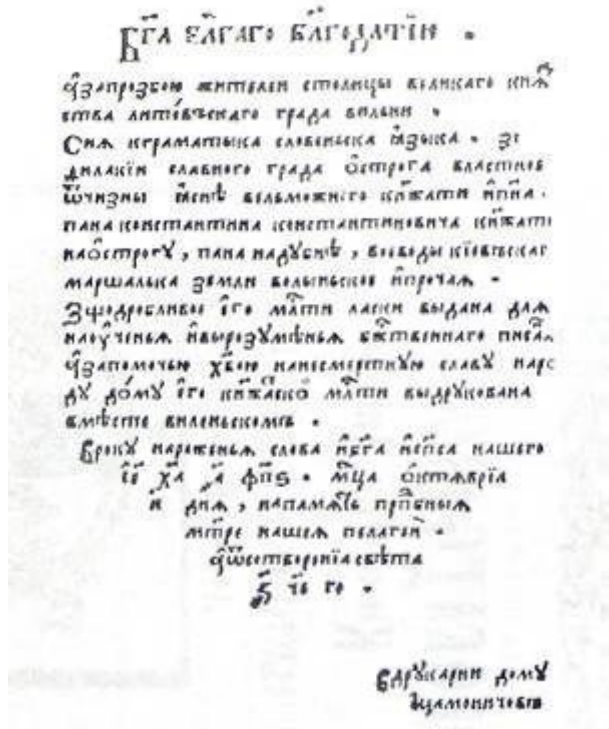 Бг҃а ЕЛ҃ГАГО БЛ҃ГОДАТЇЮ .
Ꙗ҆запрозбою жителеи столицы великаго кнѧ
ства литовъскаго града вильни .
Сиѧ кграматыка словеньска ꙗ҆зыка . зе
дилакїи славного града ѻ҆строга властное
ѿчизны ꙗ҆сне вельможного кн҃жати и҆п҃на .
пана константина константиновича кн҃жати
наѻ҆строгу , пана надубнѣ , воеводы кїевъског
маршалька земли волыньское и҆прочаѧ .
Зщодробливое е҆го мл҃ти ласки выдана длѧ
наоу҆ченьѧ и҆вырозумѣньѧ бж҃твеннаго писа҃нѧ
ꙗ҆запомочью хв҃ою нанесмертную славу наро
ду дому е҆го кнѧжаско҃ мл҃ти выдрукована
вмѣсте виленьскомъ .
Вроку нароженьѧ слова и҆бг҃а и҆сп҃са нашего
їс҃ х҃а ҂а҃ ф҃п҃ѕ . мц҃а ѻ҆ктѧврїа
и҃ днѧ , напамѧ҃ть прп҃бныѧ
мт҃ре нашеѧ пелагеи .
ꙗ҆ѿсотворенїа свѣта
҂ѕ҃ ч҃е го .
Вдрукарни дому
Мамоничовъ